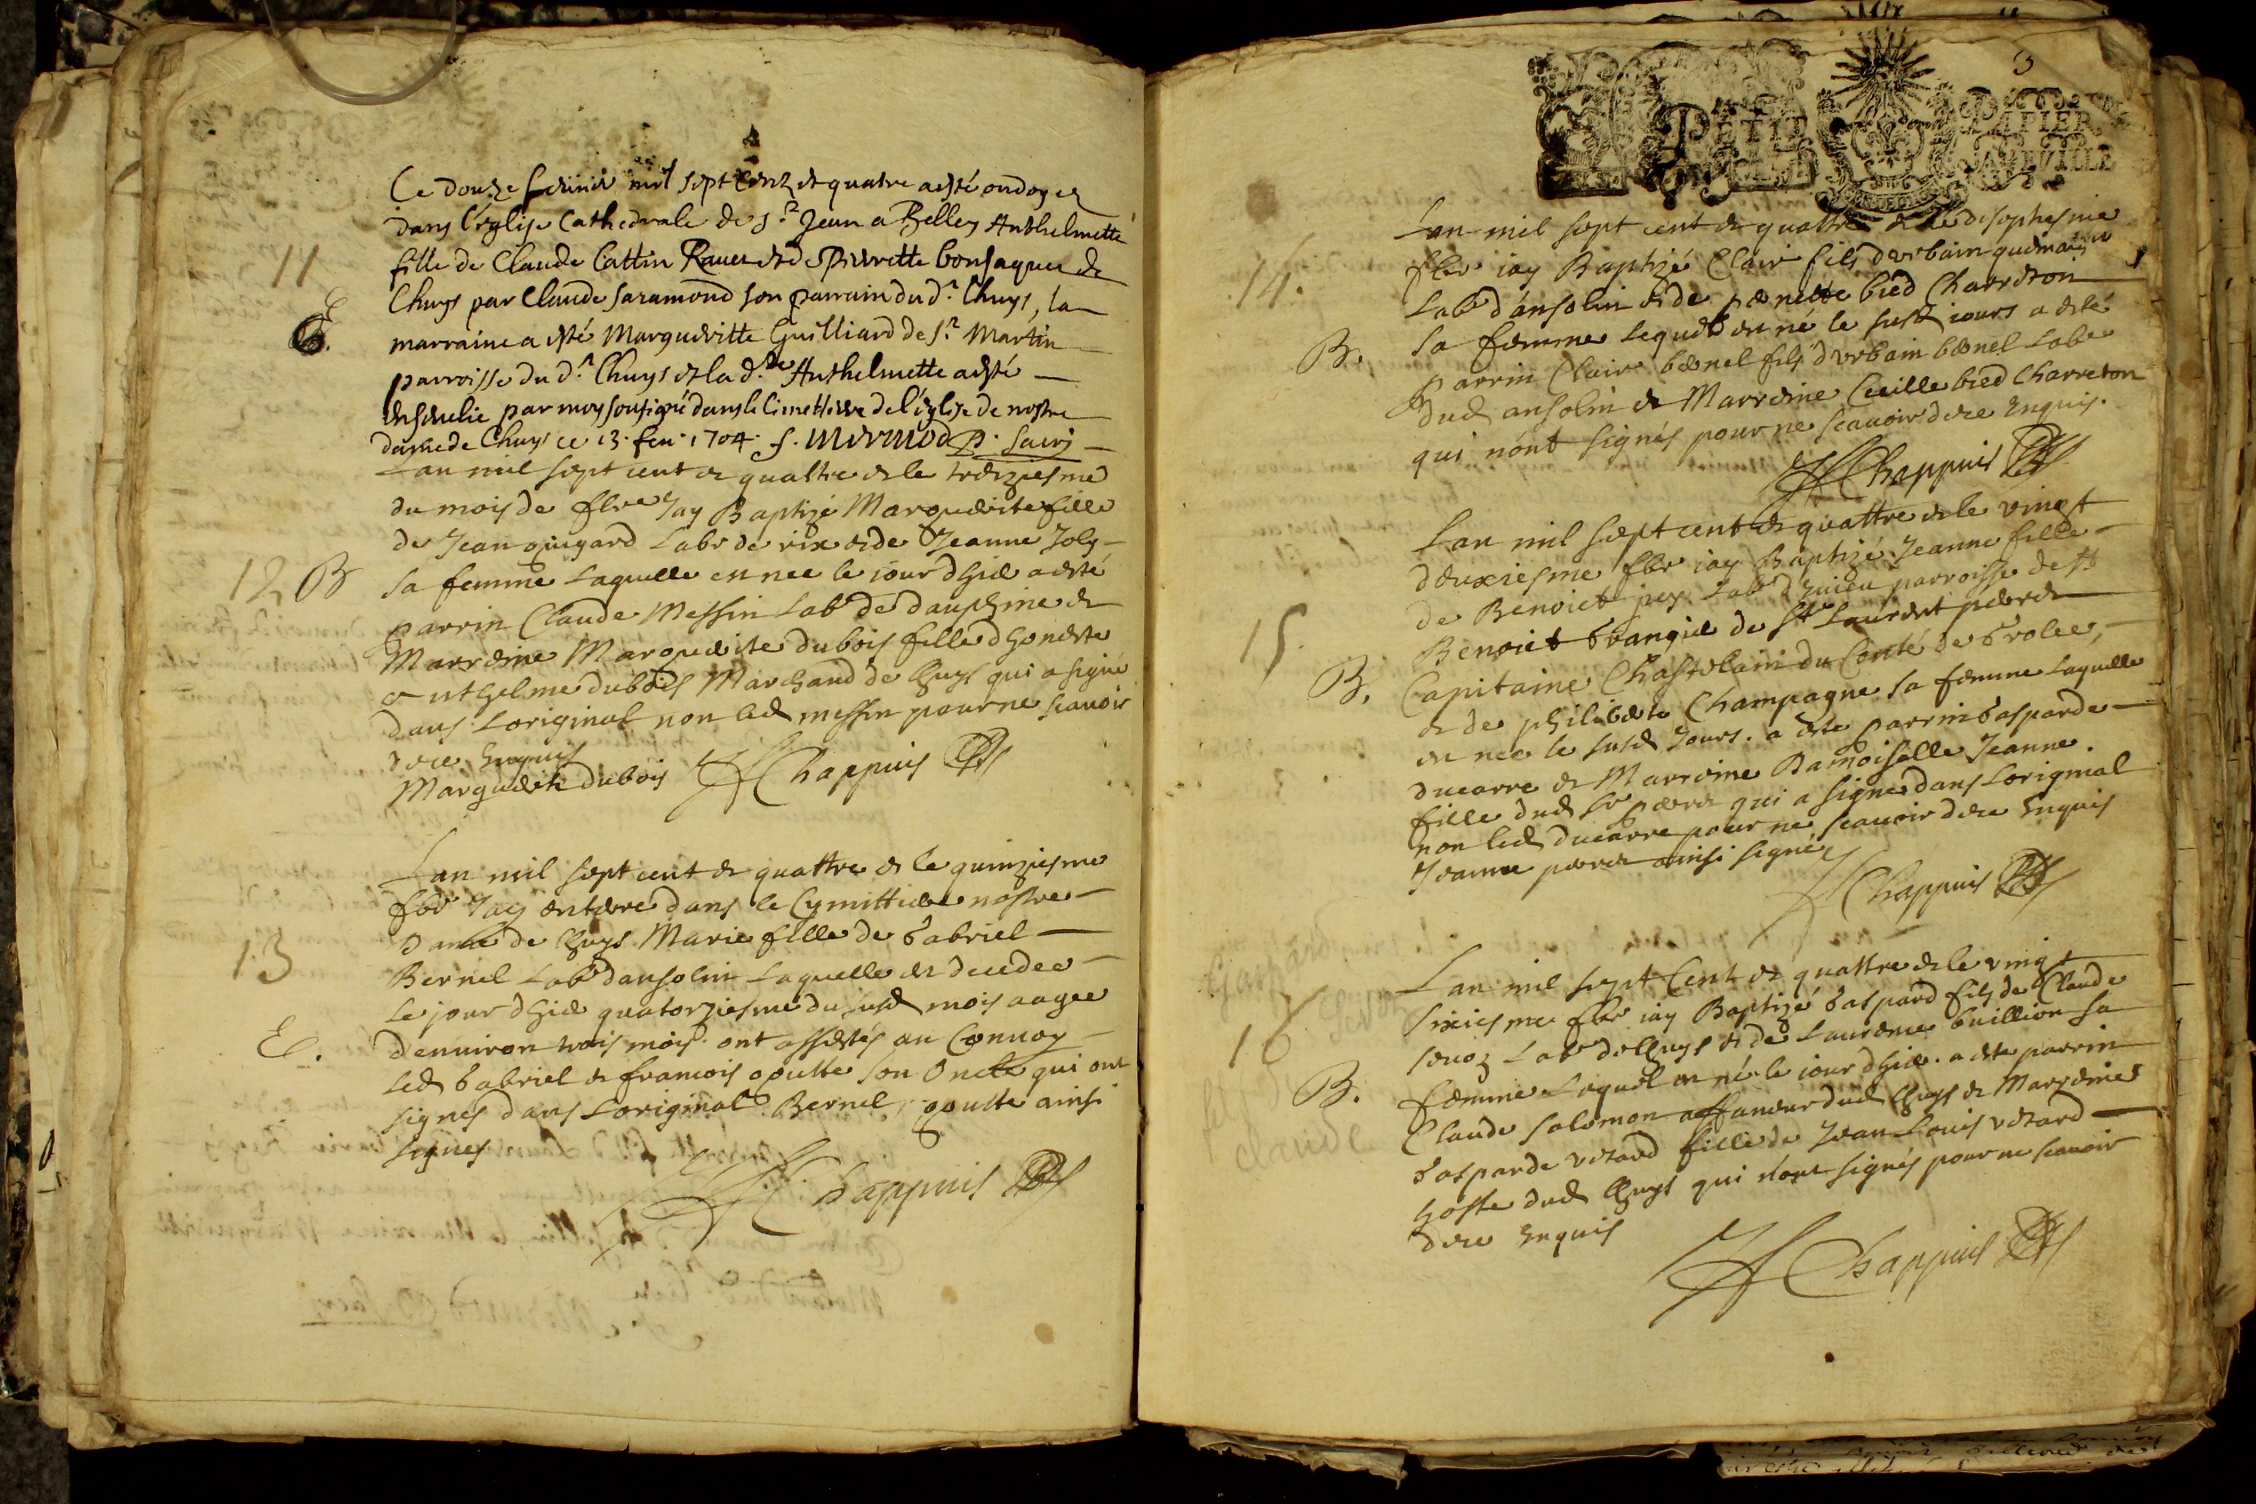 11
E
Ce douze feurier mil sept centz et quatre a esté ondoyez
dans l'église Cathedrale de St Jean a Belley Anthelmette
fille de Claude Cattin Rauet et de Pierrette bonsaquet de
Chuys par Claude Saramond son parrain du dt Chuys, la
marraine a esté Marguéritte Guilliard de St Martin
parroisse du dt Chuys et la dte Anthelmette a esté
enseulie par moy sousigné dans le cimettierre de l'église de nostre
dame de Chuys ce 13. feu. 1704. f. mermod p. sacrj
12 B
Lan mil sept cent et quattre et le treziesme
du mois de fber Jay Baptizé Marguerite fille
de Jean quigard Labr de vix et de Jeanne Joly
sa femme Laquelle est nee le jour dhier a esté
parrin Claude Messin Labr de dauphine et
Marreine Marguerite dubois fille dhoneste
anthelme dubois Marchand de Chuys qui a signé
dans Loriginal non led messin pour ne scauoir
de ce Enquis
Marguerite dubois Chappuis
13
E.
Lan mil sept cent et quattre et le quinziesme
fber Jay entere dans le Cymittiere nostre
Dame de Chuys Marie fille de Gabriel
Bernel Labr dansolin Laquelle est decedee
Le jour dhier quatorziesme du susd mois aagee
denuiron trois mois. ont assistés au Conuoy
led Gabriel et francois goutte son Oncle qui ont
signes dans Loriginal Bernel, goutte ainsi
signes
Chappuis
3
PETIT PAPIER
14.
B.
Lan mil sept cent et quattre et le diseptiesme
fber iay Baptizé Clair fils durbain quemain
Labr dansolin et de pernette bied Charreton
sa femme lequel est né le susd iours a esté
parrin Clair bernel fils durbain bernel Labr
dud ansolin et Marreine Cecille bied Charreton
qui nont signés pour ne scauoir de ce Enquis.
Chappuis
15
B.
Lan mil sept cent et quattre et le vingt
deuxiesme fber iay Baptizé Jeanne fille
de Benoict pey Labr dhuieu parroisse de St
Benoict Grangier de St Laurent pierre
Capitaine Chastelain du Conté de Grolee,
et de philiberte Champagne sa femme laquelle
est nee le susd Jours. a este parrin Gasparde
ducarre et Marreine Damoiselle Jeanne.
fille dud Sr pierre qui a signé dans Loriginal
non led ducarre pour ne scauoir de ce Enquis
Jeanne pierre ainsi signé
Chappuis
16
B.
claude
Lan mil sept Cent et quattre et le vingt
sixiesme fber iay Baptizé Gaspard fils de Claude
seuoz Labr de Chuys et de Laurence Guillion sa
femme Lequel est né le iour dhier. a este parrin
Claude Salomon affaneur dud Chuys et Marreine
Gasparde vetard fille de Jean Louis vetard
hoste dud Chuys qui nont signés pour ne scauoir
de ce Enquis
Chappuis